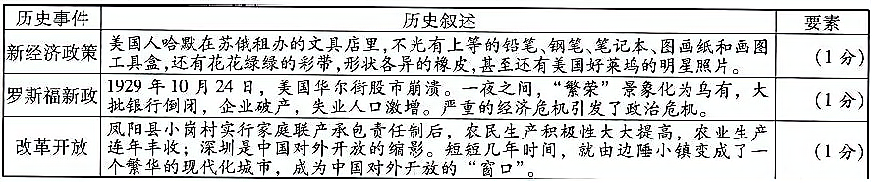 历史事件 历史叙述 要素
新经济政策 美国人哈默在苏俄租办的文具店里,不光有上等的铅笔、钢笔、笔记本、图画纸和画图
工具盒,还有花花绿绿的彩带,形状各异的橡皮,甚至还有美国好莱坞的明星照片。 (1分)
罗斯福新政 1929年10月24日,美国华尔街股市崩溃。一夜之间,“繁荣”景象化为乌有,大
批银行倒闭,企业破产,失业人口激增。严重的经济危机引发了政治危机。 (1分)
改革开放 凤阳县小岗村实行家庭联产承包责任制后,农民生产积极性大大提高,农业生产
连年丰收;深圳是中国对外开放的缩影。短短几年时间,就由边陲小镇变成了一
个繁华的现代化城市,成为中国对外开放的“窗口”。 (1分)